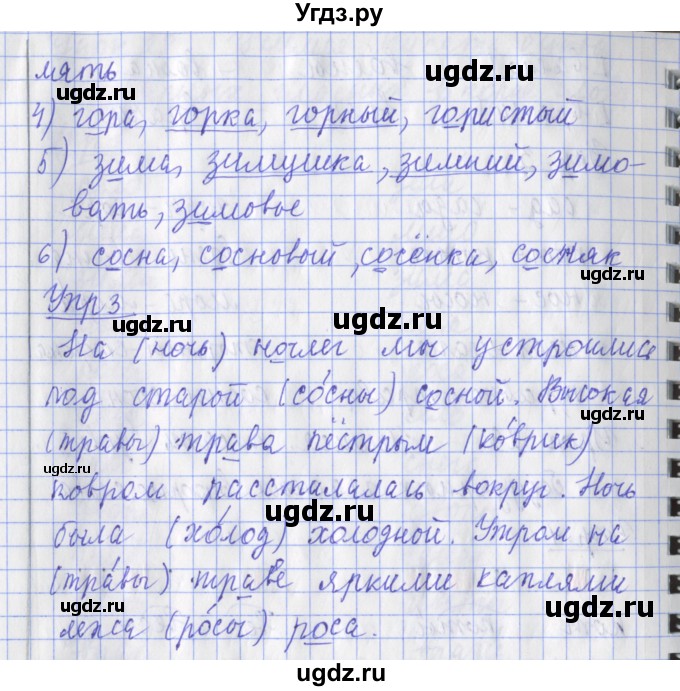 Угдз.ру
мять
4) гора, горка, горный, гористый
5) зима, зимушка, зимний, зимо-
вать, зимовье
6) сосна, сосновый, сосёнка, сосняк
Упр 3
На (ночь) ночлег мы устроились
под старой (со́сны) сосной. Высокая
(травы) трава пёстрым (ко́врик)
ковром расстилалась вокруг. Ночь
была (хо́лод) холодной. Утром на
(тра́вы) траве яркими каплями
лежа (ро́сы) роса.
ugdz.ru
ugdz.ru
ugdz.ru
ugdz.ru
ugdz.ru
ugdz.ru
ugdz.ru
ugdz.ru
ugdz.ru
ugdz.ru
ugdz.ru
ugdz.ru
ugdz.ru
ugdz.ru